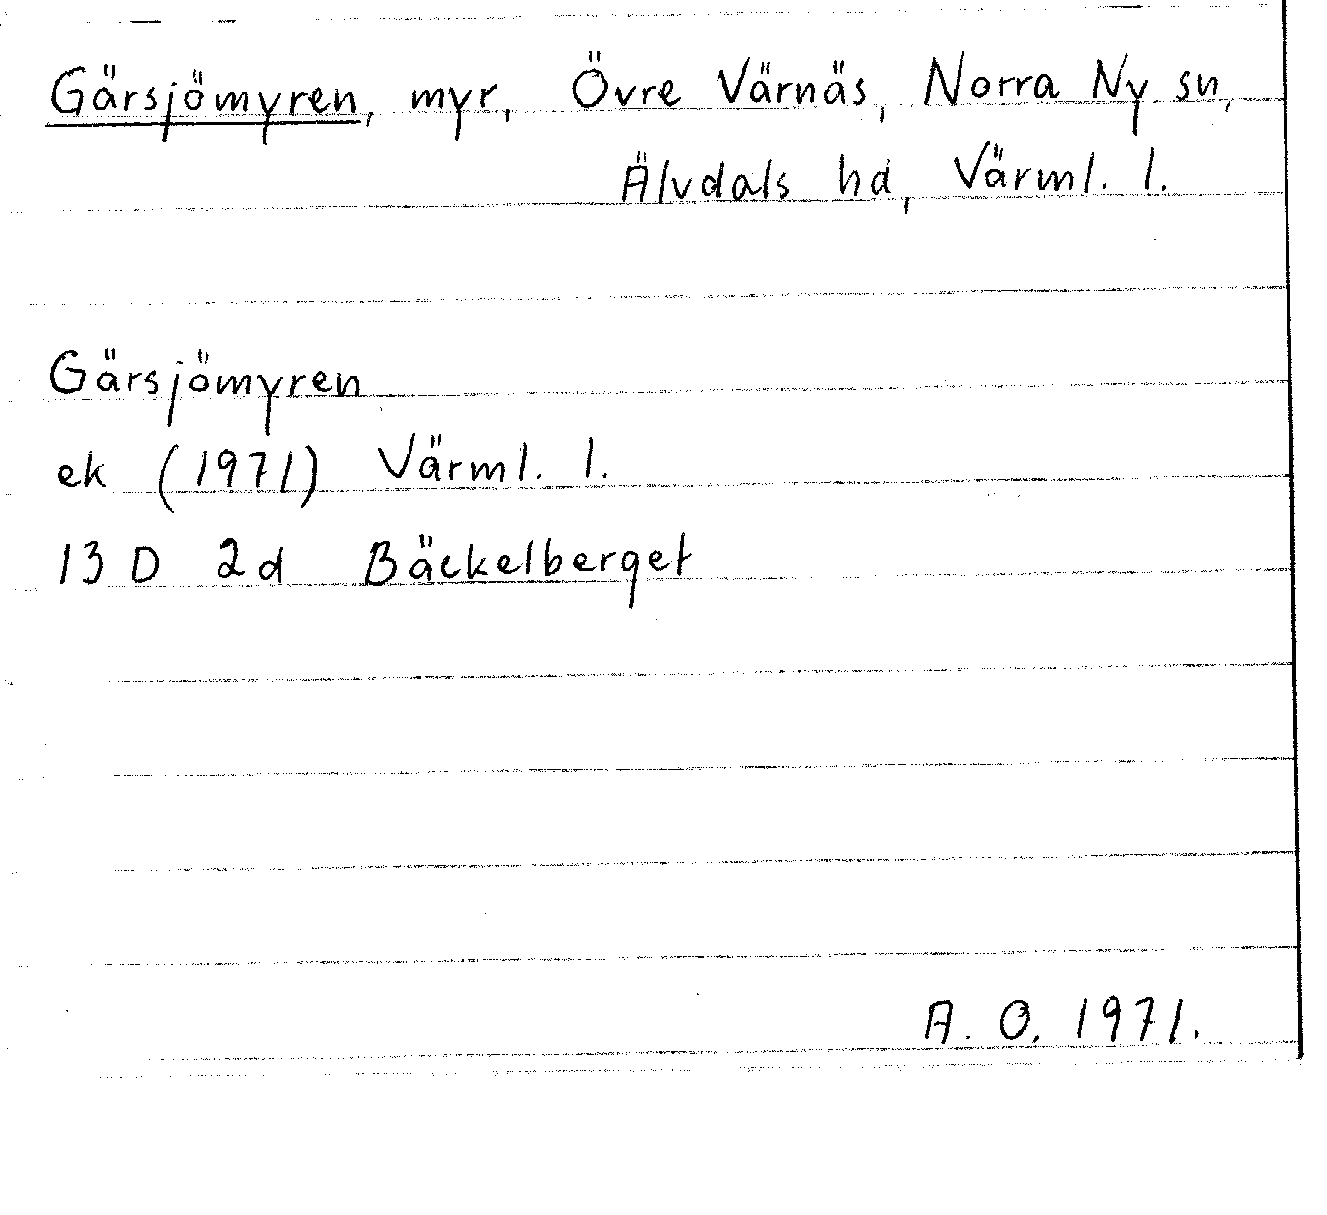 Gärsjömyren, myr, Övre Värnäs, Norra Ny sn,
Älvdals hd, Värml. l.
Gärsjömyren
ek (1971) Värml. l.
13 D 2d Bäckelberget
A. O. 1971.